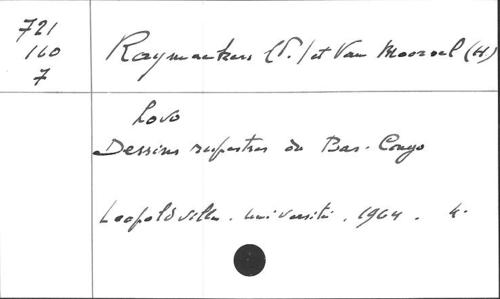 721
160
7
Raymaekers (P.) et Van Moorsel (H)
Lovo
Dessins rupestres du Bas-Congo
Leopoldville. Université. 1964. 4.